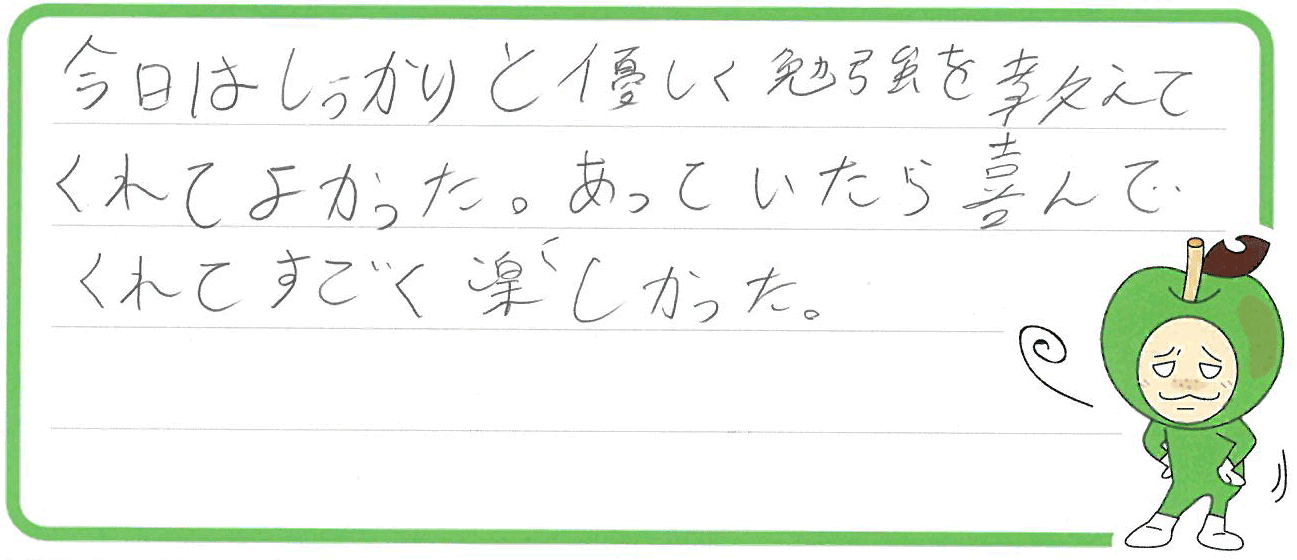 今日はしっかりと優しく勉強を教えて
くれてよかった。あっていたら喜んで
くれてすごく楽しかった。